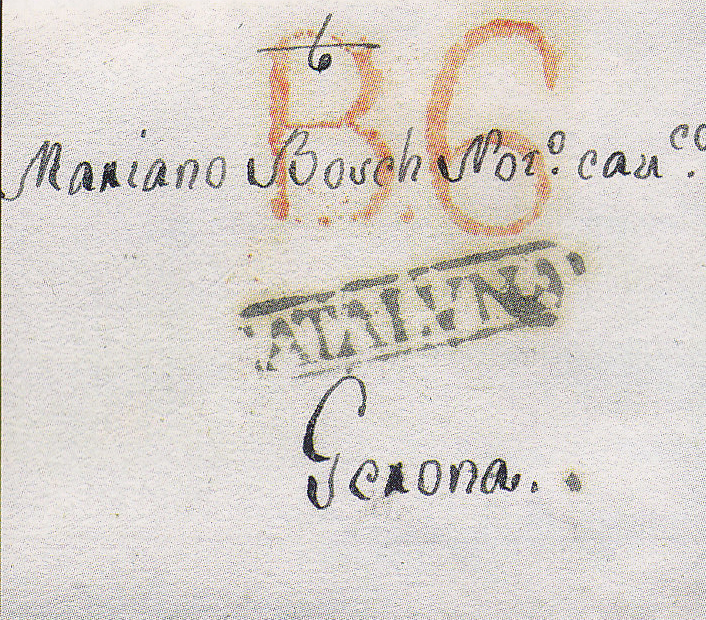 6
B.G
Mariano Bosch Nor.º cau.ᶜᵒ
CATALVÑA
Gerona.